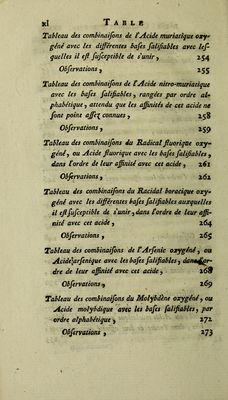 xl TABLE
Tableau des combinaisons de l'Acide muriatique oxy-
géné avec les différentes bases salifiables avec les-
quelles il est susceptible de s'unir, 254
Observations, 255
Tableau des combinaisons de l'Acide nitro-muriatique
avec les bases salifiables, rangées par ordre al-
phabétique, attendu que les affinités de cet acide ne
sont point assez connues, 258
Observations, 259
Tableau des combinaisons du Radical fluorique oxy-
géné, ou Acide fluorique avec les bases salifiables,
dans l'ordre de leur affinité avec cet acide, 261
Observations, 262
Tableau des combinaisons du Racidal boracique oxy-
géné avec les différentes bases salifiables auxquelles
il est susceptible de s'unir, dans l'ordre de leur affi-
nité avec cet acide, 264
Observations, 265
Tableau des combinaisons de l'Arsenic oxygéné, ou
Acide arsenique avec les bases salifiables, dans l'or-
dre de leur affinité avec cet acide, 268
Observations, 269
Tableau des combinaisons du Molybdène oxygéné, ou
Acide molybdique avec les bases salifiables, par
ordre alphabétique, 272
Observations, 273